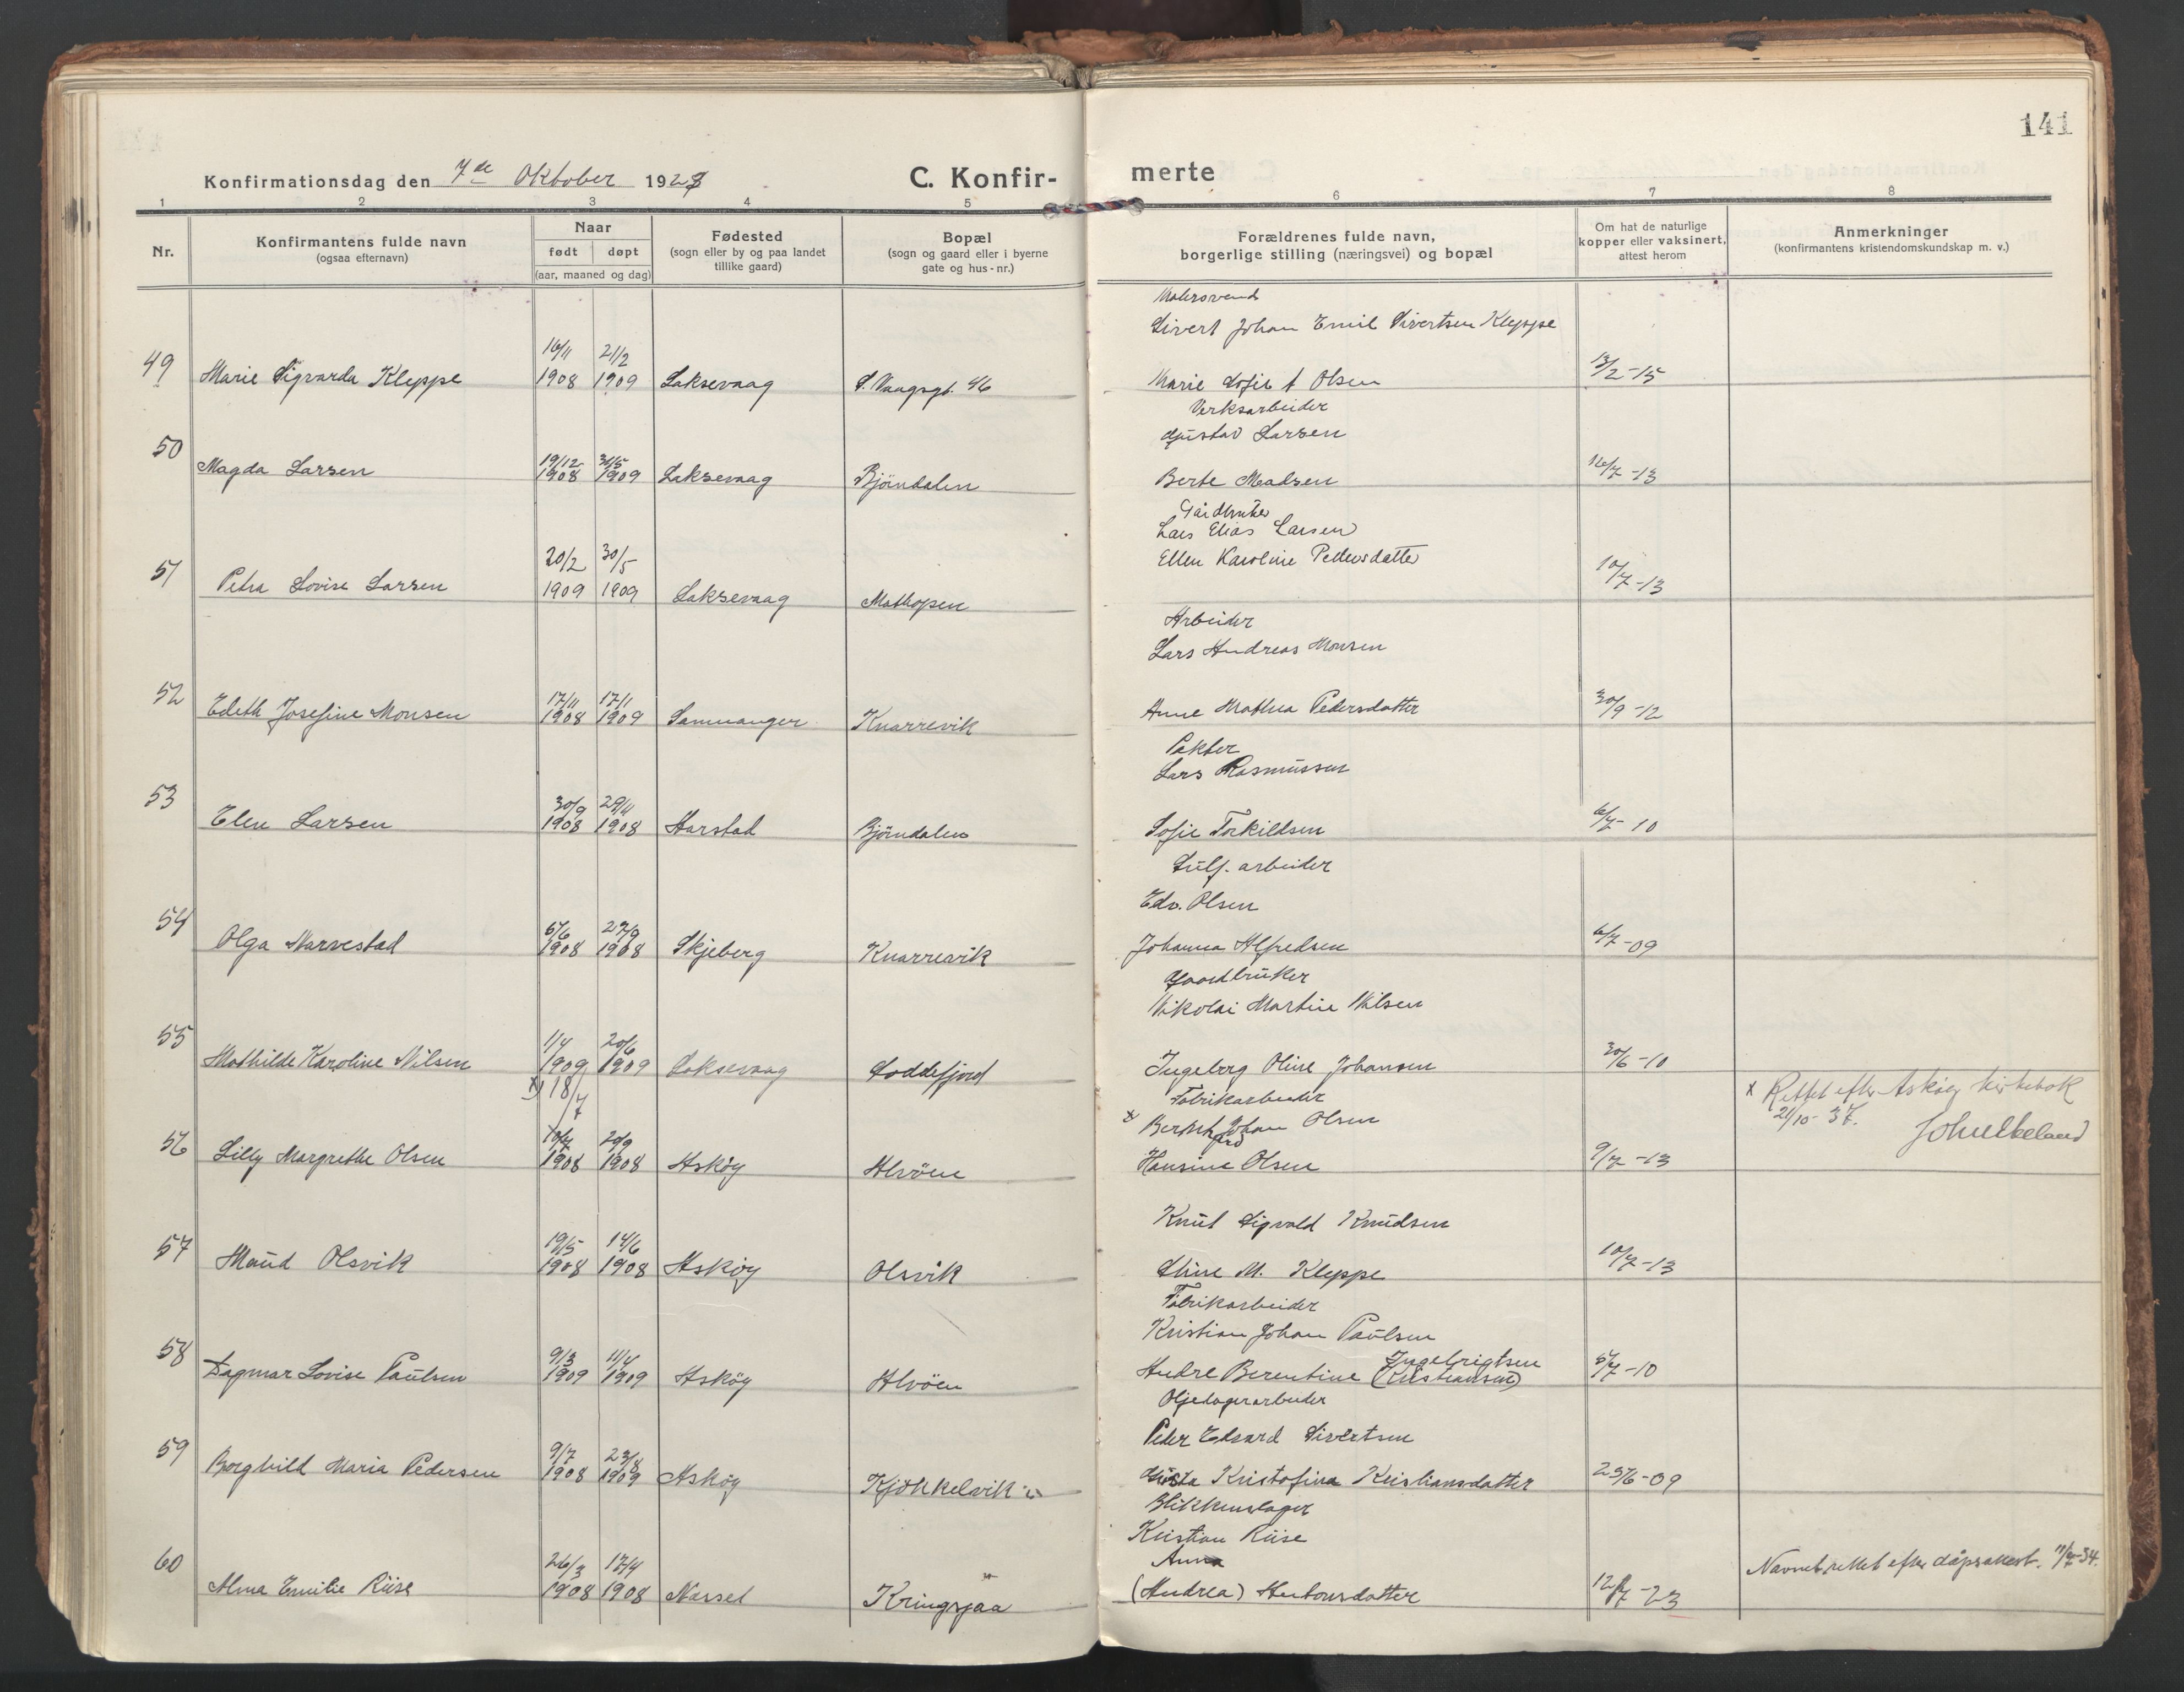 141
Konfirmationsdag den 7de Oktober 1923 C. Konfir- merte
1 2 3 4 5 6 7 8
Nr.
Konfirmantens fulde navn
(ogsaa efternavn)
Naar
født døpt
(aar, maaned og dag)
Fødested
(sogn eller by og paa landet
tillike gaard)
Bopæl
(sogn og gaard eller i byerne
gate og hus-nr.)
Forældrenes fulde navn,
borgerlige stilling (næringsvei) og bopæl
Om hat de naturlige
kopper eller vaksinert,
attest herom
Anmerkninger
(konfirmantens kristendomskundskap m. v.)
Malersvend
Sivert Johan Emil Sivertsen Kleppe
16/11 21/2
49 Marie Sigvarda Kleppe 1908 1909 Laksevaag D. Vaagsgt. 46 Marie Sofie f Olsen 13/2-15
Verksarbeider
Gustav Larsen
19/12 31/5
50 Magda Larsen 1908 1909 Laksevaag Bjöndalen Berte Madsen 16/7-13
Gårdbruker
Lars Elias Larsen
Ellen Karoline Pedersdatter
20/2 30/5
51 Petra Lovise Larsen 1909 1909 Laksevaag Mathopen 10/7-13
Arbeider
Lars Andreas Monsen
17/11 17/1
52 Edith Josefine Monsen 1908 1909 Samnanger Knarrevik Anne Mathea Pedersdatter 30/9-12
Pakter
Lars Rasmussen
30/9 29/11
53 Elen Larsen 1908 1908 Harstad Bjöndalen Sofie Torkildsen 6/7-10
Sulf. arbeider
Edv. Olsen
5/6 27/9
54 Olga Narvestad 1908 1908 Skjeberg Knarrevik Johanna Alfredsen 6/7-09
Gaardbruker
Nikolai Martin Nilsen
1/4 20/6
55 Mathilde Karoline Nilsen 1909 1909 Laksevaag Loddefjord Ingeborg Oline Johansen 30/6-10
x) 18/7
Fabrikarbeider
x Bernhard Johan Olsen
x Rettet efter Askøy kirkebok
21/10-37.
10/7 20/9
56 Lilly Margrethe Olsen 1908 1908 Asköy Alvöen Hansine Olsen 9/7-13
Knut Sigvald Knudsen
19/5 14/6
57 Maud Olsvik 1908 1908 Asköy Olsvik Stine M. Kleppe 10/7-13
Fabrikarbeider
Kristian Johan Paulsen
9/3 11/4 Ingebrigtsen
58 Dagmar Lovise Paulsen 1909 1909 Asköy Alvöen Andre Berentine (Kristiansen) 5/7-10
Oljelagerarbeider
Peder Edvard Sivertsen
9/7 23/8
59 Borghild Maria Pedersen 1908 1909 Asköy Kjökkelvik Gusta Kristofina Kristiansdatter 23/6-09
Blikkenslager
Kristian Riise
Anna
26/3 17/4
60 Alma Emilie Riise 1908 1908 Narset Kringsjaa (Andrea) Antonsdatter 12/7-23 Navnet rettet efter dåpsattest. 11/4-34.